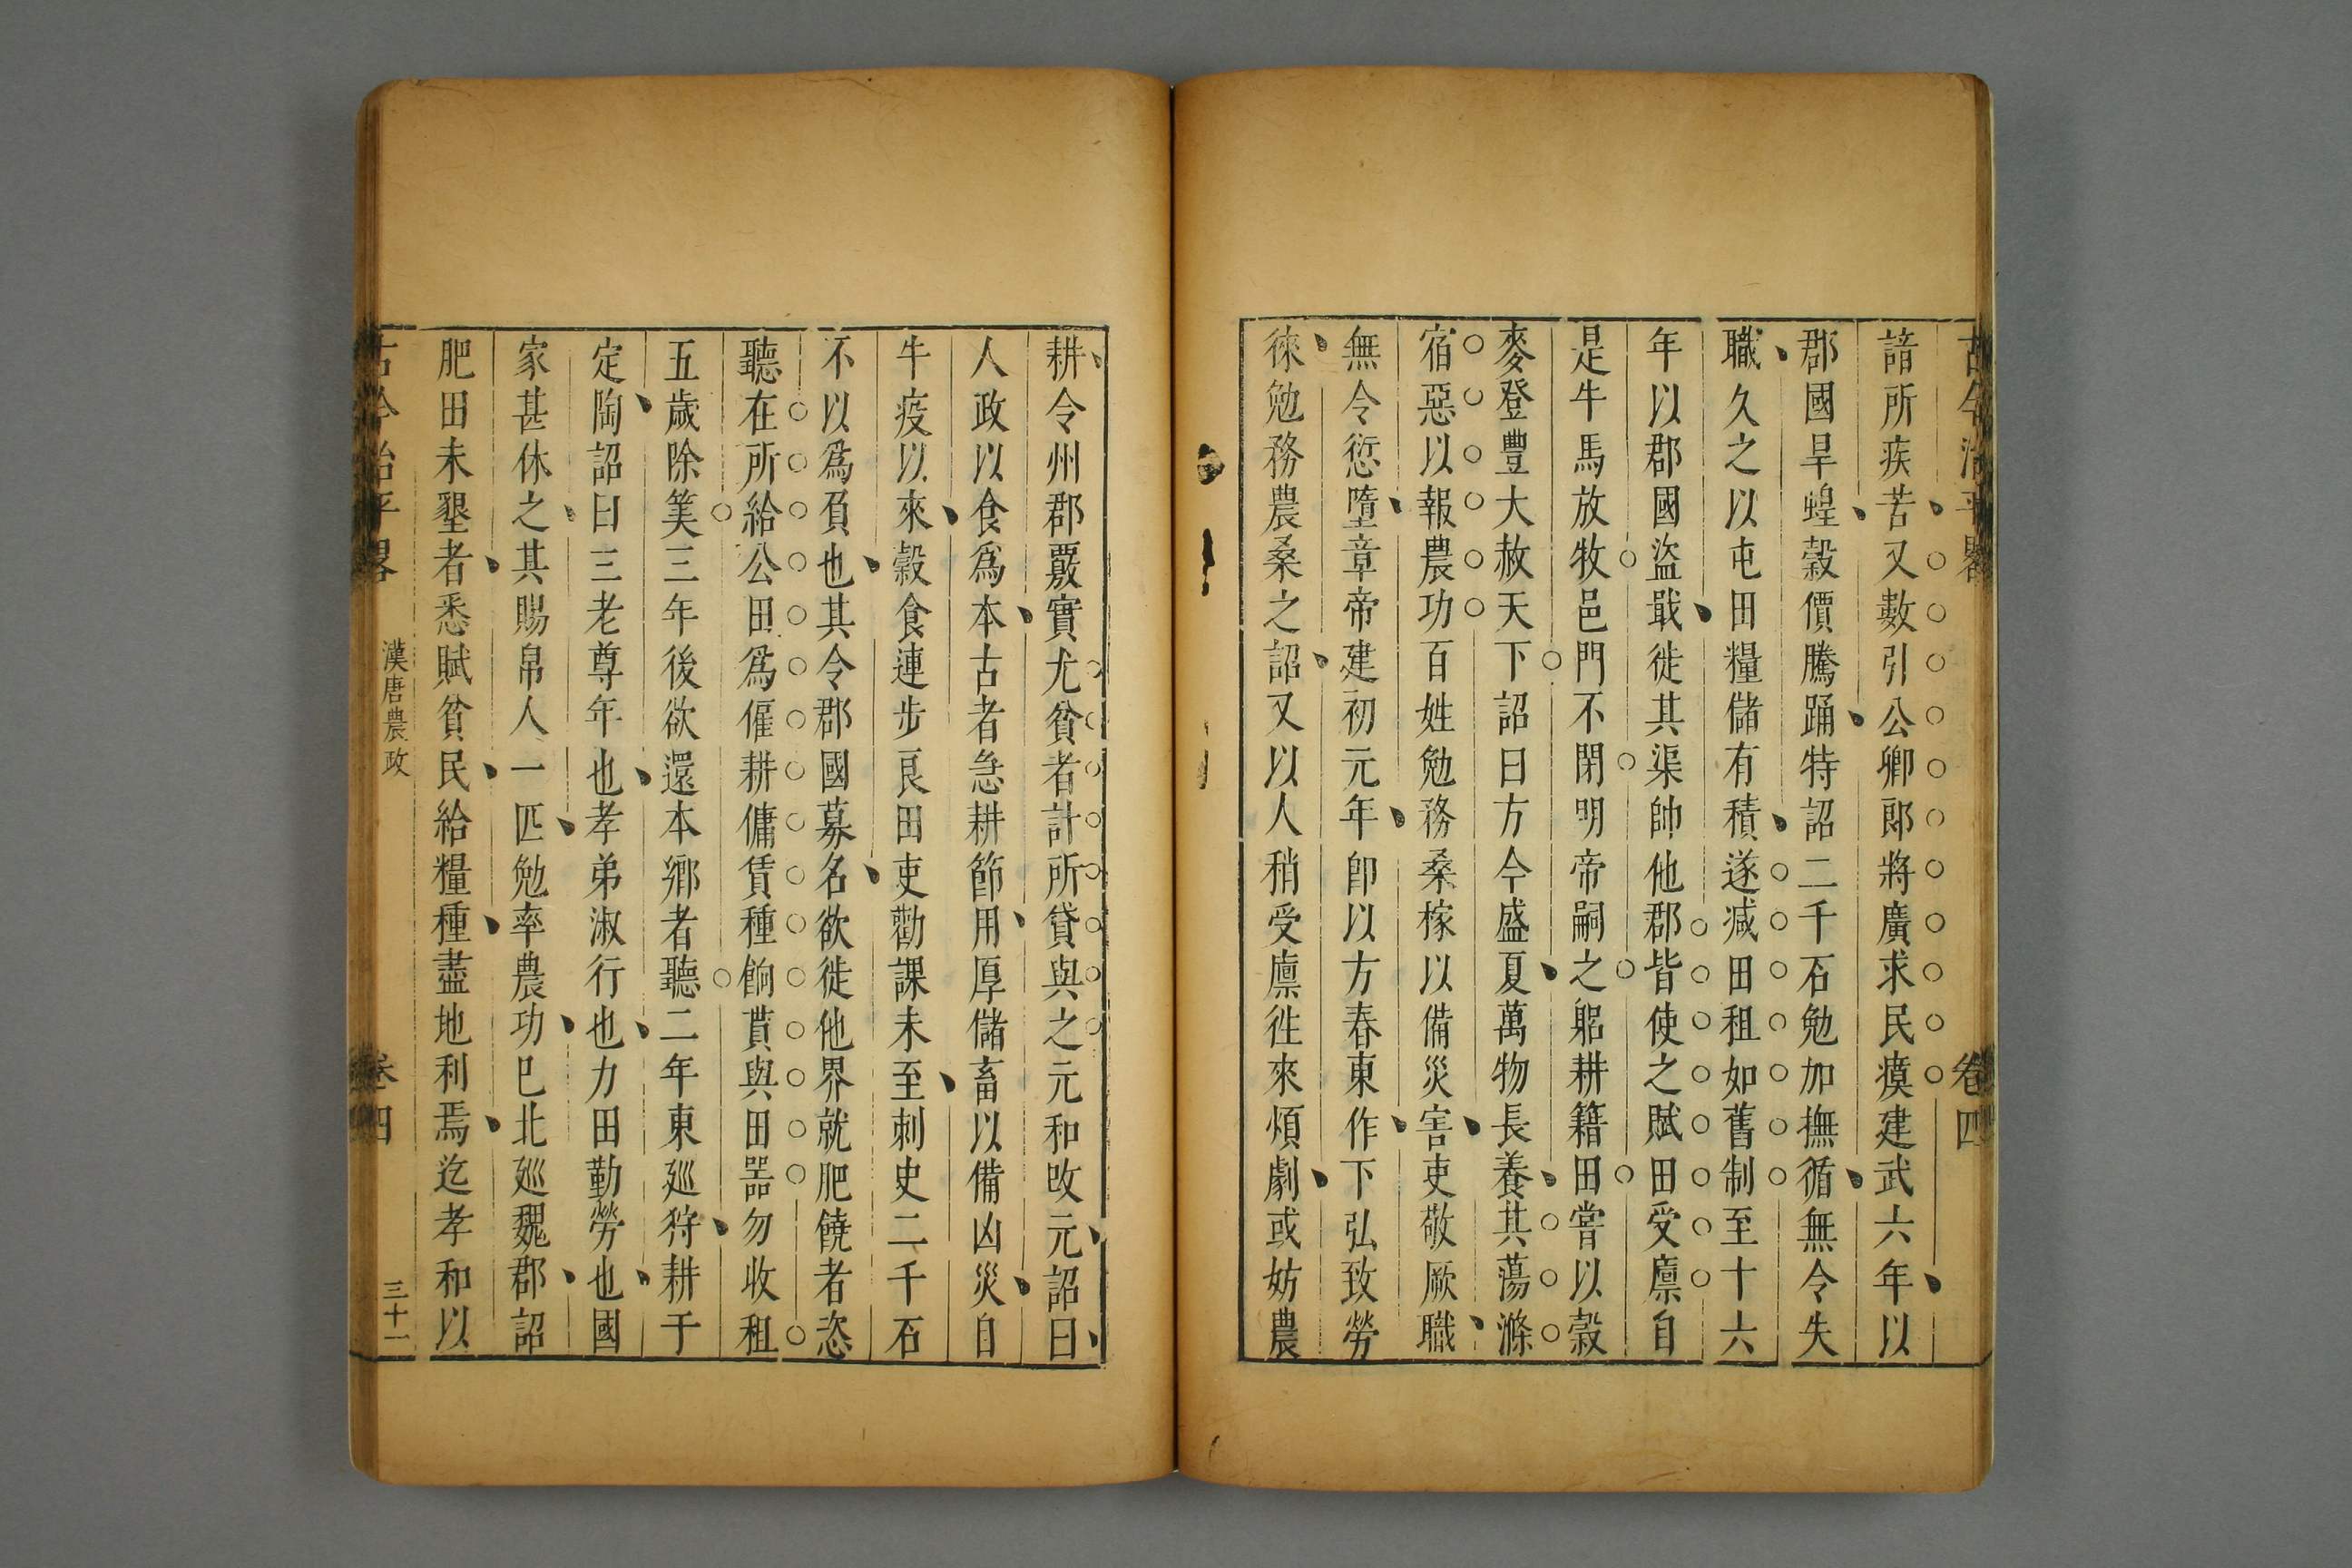 古今治平畧
卷四
諳所疾苦又數引公卿郎將廣求民瘼建武六年以
郡國旱蝗穀價騰踊特詔二千石勉加撫循無令失
職久之以屯田糧儲有積遂减田租如舊制至十六
年以郡國盜戢徙其渠帥他郡皆使之賦田受廪自
是牛馬放牧邑門不閉明帝嗣之躬耕籍田嘗以穀
麥登豐大赦天下詔曰方今盛夏萬物長養其蕩滌
宿惡以報農功百姓勉務桑稼以備災害吏敬厥職
無令愆墮章帝建初元年卽以方春東作下弘致勞
徠勉務農桑之詔又以人稍受廪徃來煩劇或妨農
耕令州郡覈實尤貧者計所貸與之元和攺元詔曰
人政以食爲本古者急耕節用厚儲畜以備凶災自
牛疫以來穀食連步良田吏勸課未至刺史二千石
不以爲負也其令郡國募名欲徙他界就肥饒者恣
聽在所給公田爲僱耕傭賃種餉貰與田噐勿收租
五歲除筭三年後欲還本鄉者聽二年東廵狩耕于
定陶詔曰三老尊年也孝弟淑行也力田勤勞也國
家甚休之其賜帛人一匹勉率農功巳北廵魏郡詔
肥田未墾者悉賦貧民給糧種盡地利焉迄孝和以
古今治平畧
漢唐農政
卷四
三十一